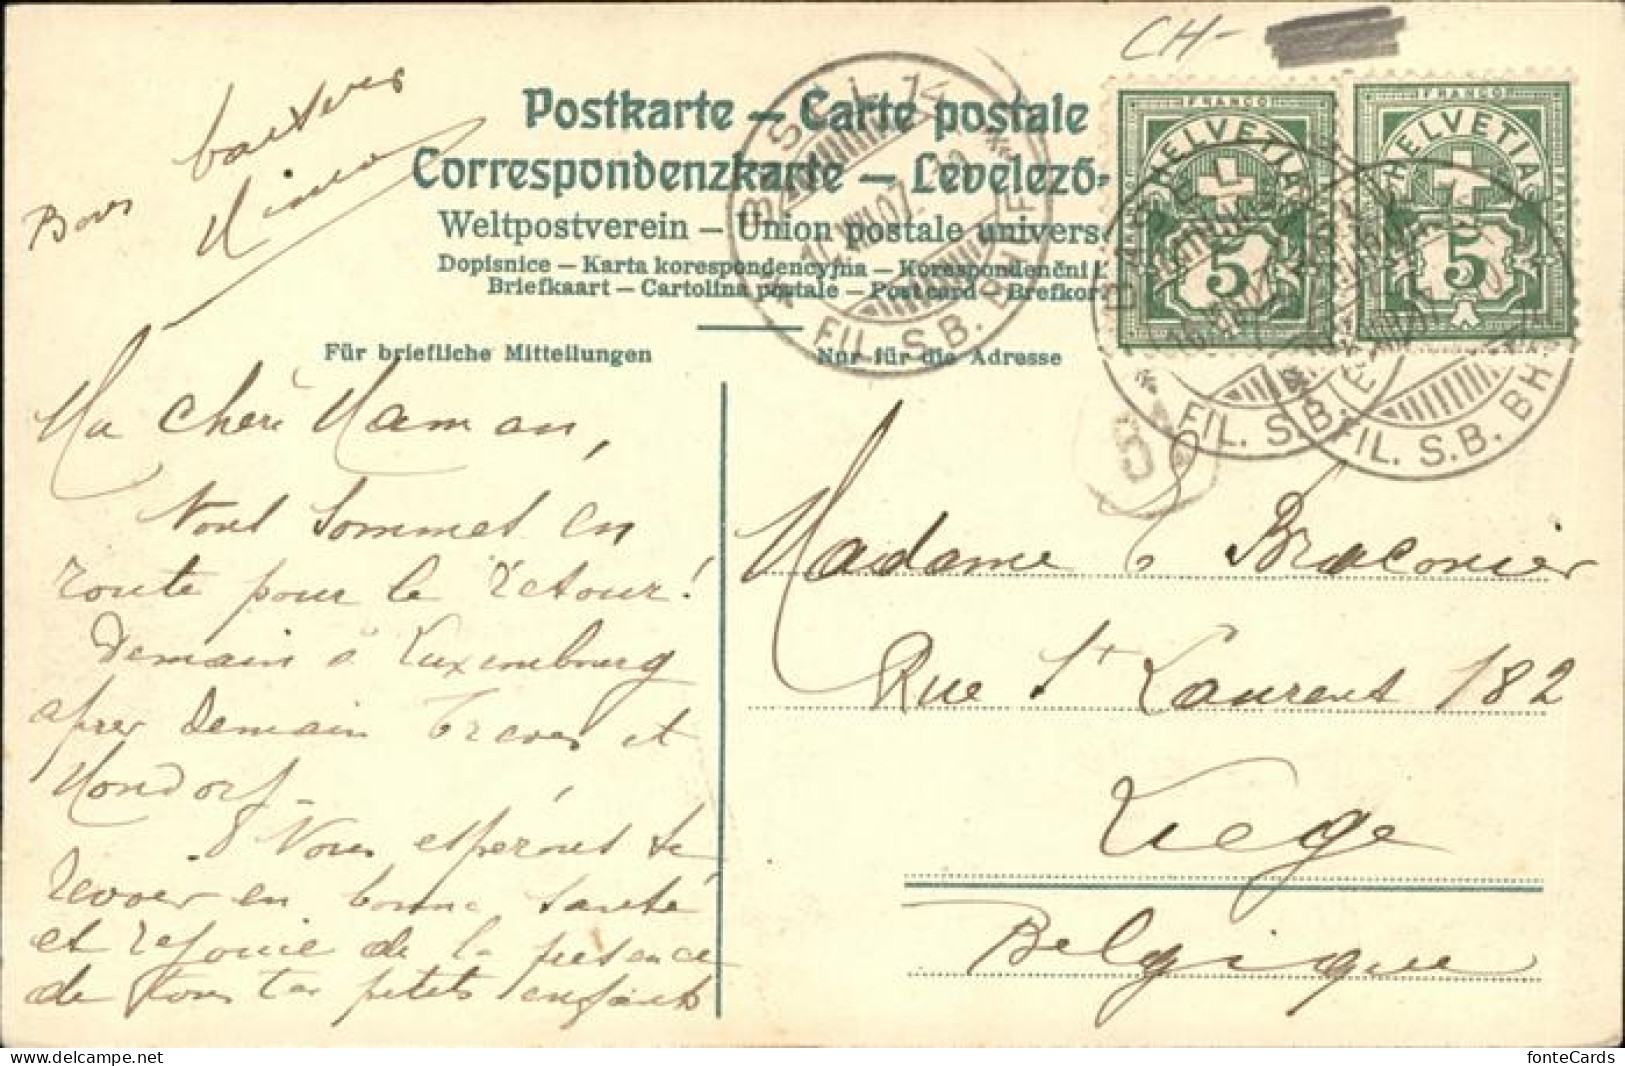 CH-
Postkarte – Carte postale
Correspondenzkarte – Levelező-
Weltpostverein – Union postale univers.
Dopisnice – Karta korespondencyjna – Korespondenční l
Briefkaart – Cartolina postale – Post card – Brefkor
Für briefliche Mitteilungen
Nur für die Adresse
FRANCO
HELVETIA
5
FRANCO
HELVETIA
5
BASEL 14
FIL. S.B. BHF
FIL. S.B.
FIL. S.B. BH
Bons
baisers
Ma chère Maman,
Nous sommes en
route pour le retour!
Demain à Luxembourg
après demain Trèves et
Mondorf.
Nous espérons te
revoir en bonne santé
et réjouie de la présence
de tous tes petits enfants
Madame Braconier
Rue St Laurent 182
Liege
Belgique
fonteCards